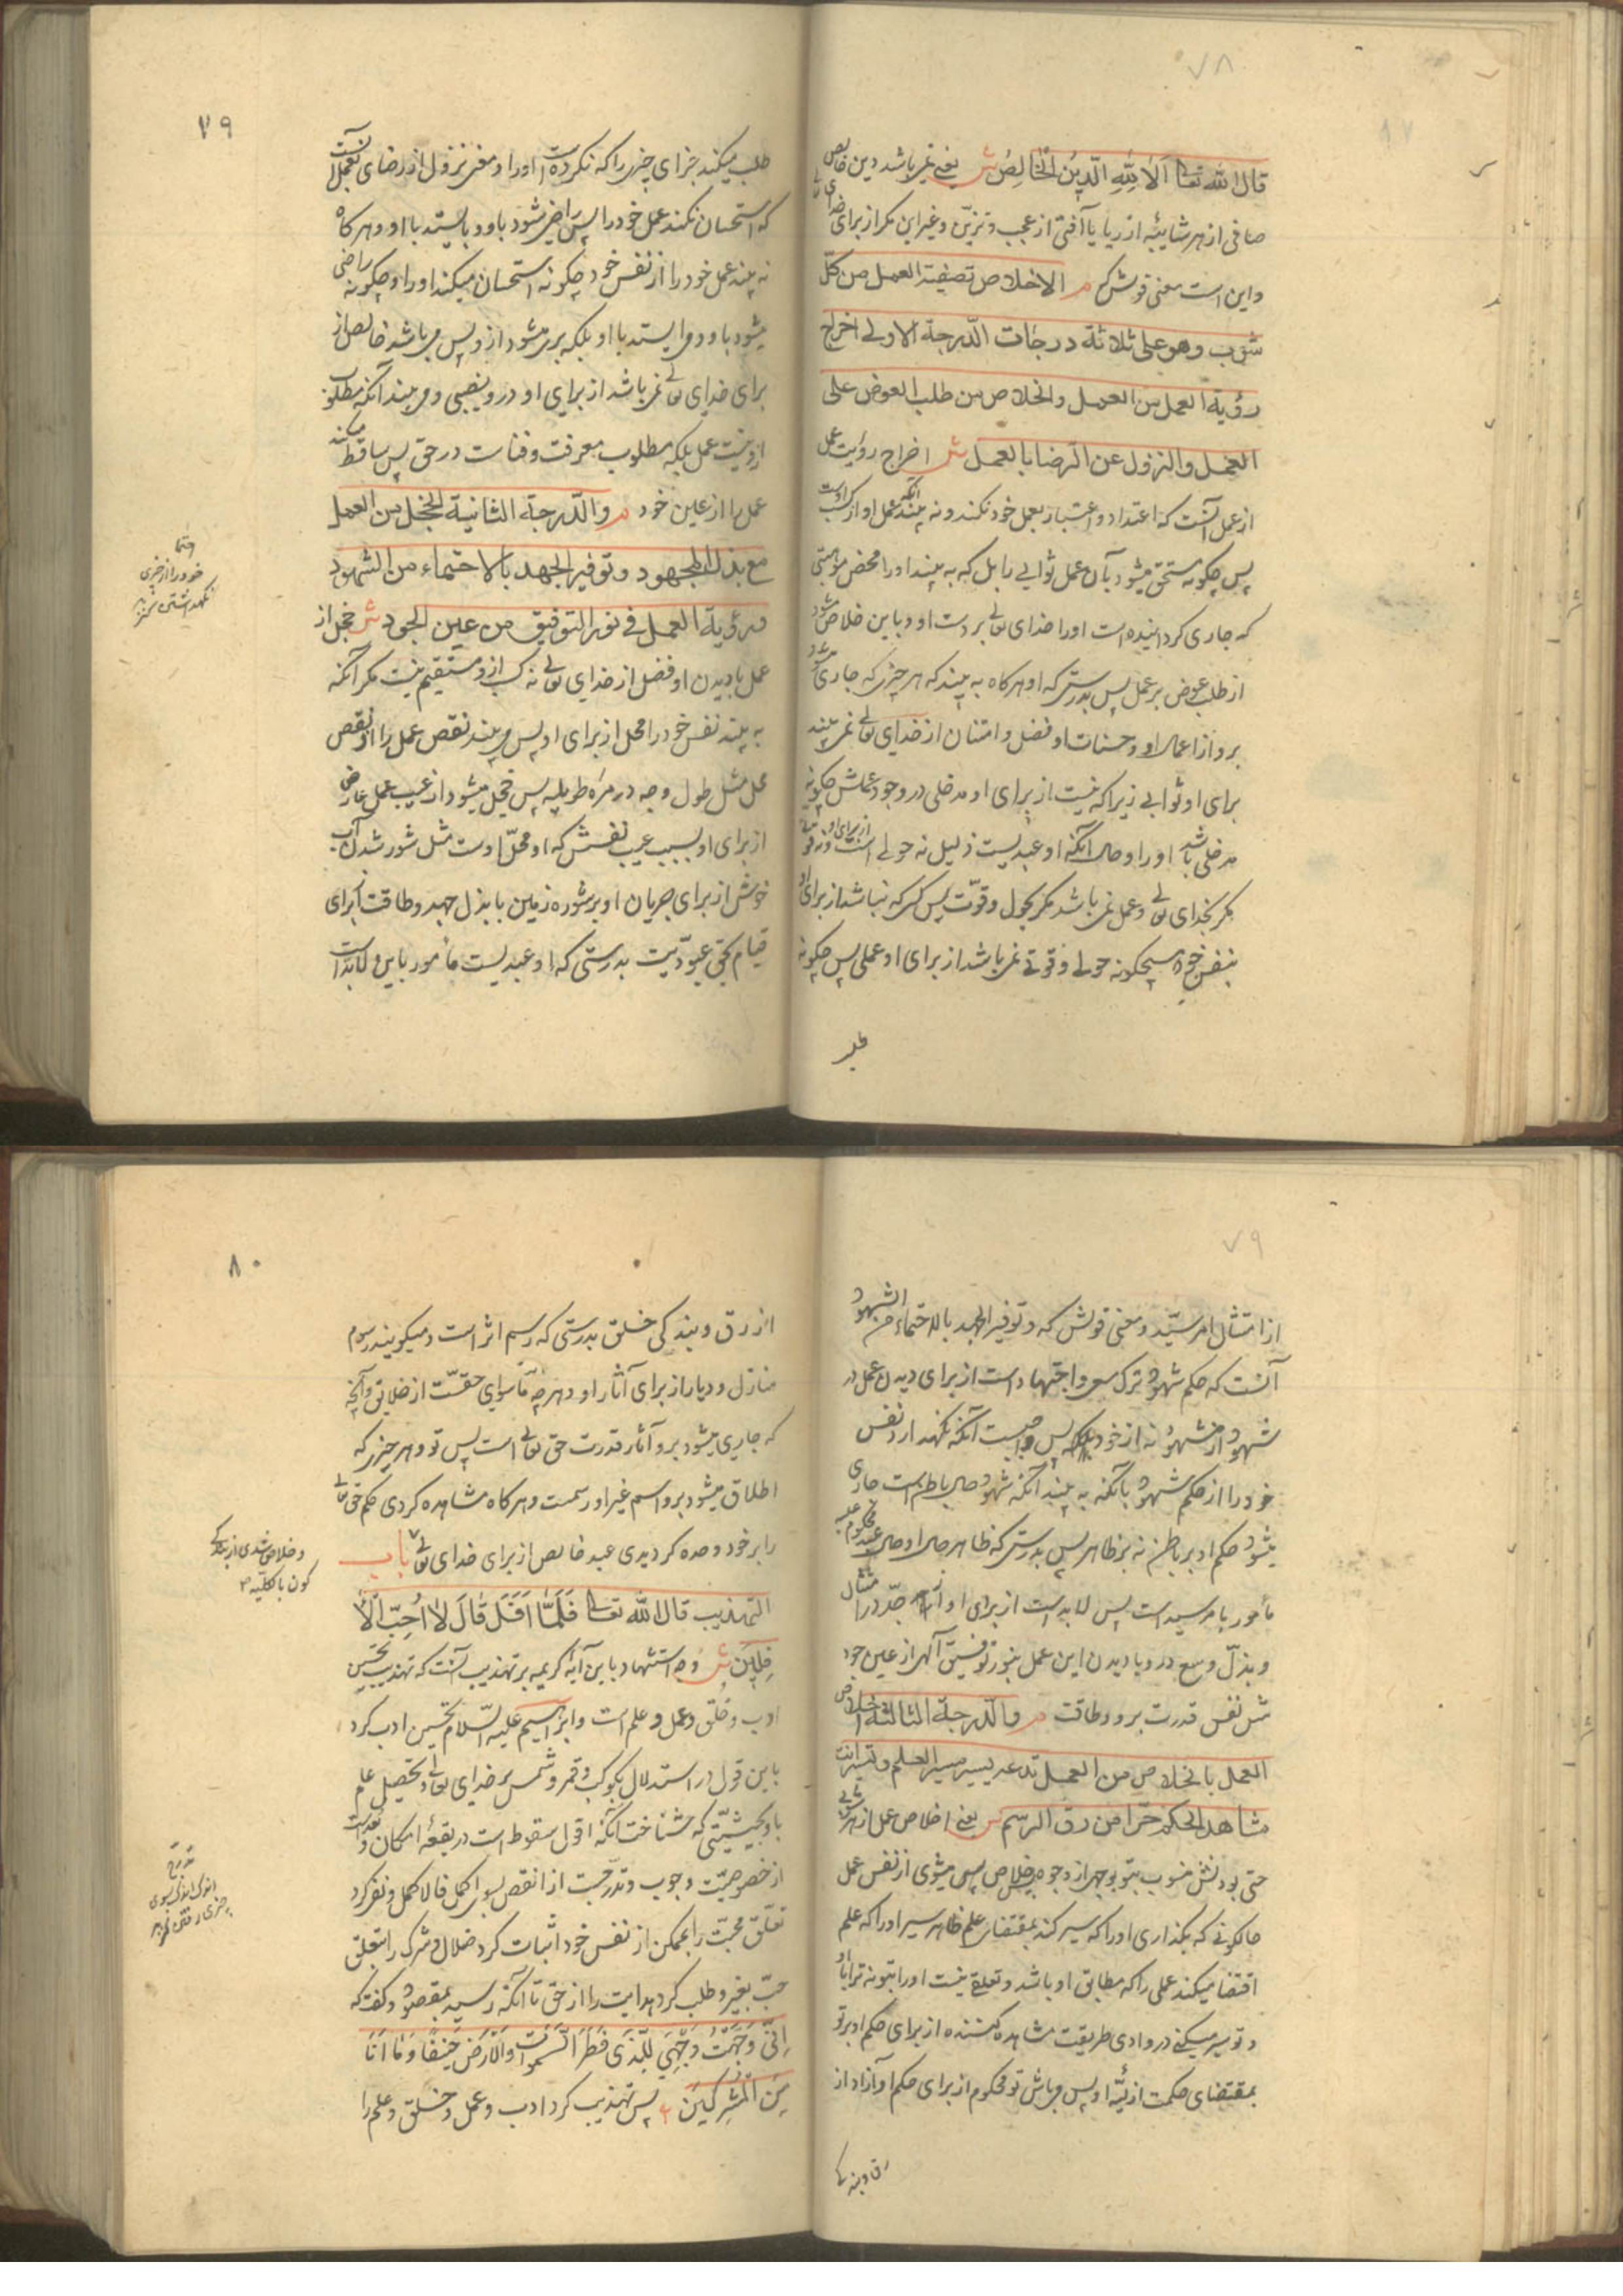 ٧٨
قال الله تعالى اَلٰا لِلّٰهِ الدّینُ الْخٰالِصُ ش یعنی نمی‌باشد دین خالص
صافی از هر شایبهٔ از ریا یا آفتی از عجب و تزیّن و غیر این مکر از برای خدای تعالی
و این است معنی قولش که م الاخلاص تصفیة العمل من کلّ
شوب و هو علی ثلاثة درجات الدّرجة الاولی اخراج
رؤیة العمل من العمل و الخلاص من طلب العوض علی
العمل و النزول عن الرضا بالعمل ش اخراج رؤیت عمل
از عمل آنست که اعتداد و اعتبار بعمل خود نکند و نه بیند عمل او از کسب اوست
پس چکونه مستحق میشود بآن عمل ثوابی را بل که به بیند او را محض موهبتی
که جاری کردانیده است او را خدای تعالی بر دست او و باین خلاص میشود
از طلب عوض بر عمل پس بدرستی که او هر کاه به بیند که هر چیزی که جاری میشود
برو از اعمال او و حسنات او فضل و امتنان از خدای تعالی نمی بیند
برای او ثوابی زیرا که نیست از برای او مدخلی در وجود عملش چکونه
مدخلی باشد او را و حال آنکه او عبدیست ذلیل نه حولی است از برای او و نه قوة
مکر بخدای تعالی و عمل نمی‌باشد مکر بحول و قوّت پس کسی که نباشد از برای او
بنفس خود هیچکونه حولی و قوتی نمی‌باشد از برای او عملی پس چکونه
طلب
٧٩
طلب میکند جزای چیزی را که نکرده است او را و معنی نزول از رضای بعمل آنست
که استحسان نکند عمل خود را پس راضی شود باو و بایستد با او و هر کاه
نه بیند عمل خود را از نفس خود چکونه استحسان میکند او را و چکونه راضی
میشود باو و می ایستد با او بلکه بری میشود ازو پس می‌باشد خالص از
برای خدای تعالی نمی‌باشد از برای او درو نصیبی و می بیند آنکه مطلوب
ازو نیست عمل بلکه مطلوب معرفت و فناست در حق پس ساقط میکند
عمل را از عین خود م و الدّرجة الثانیة الخجل من العمل
مع بذل المجهود و توفیر الجهد بالاحتماء من الشهود
و رؤیة العمل فی نور التوفیق من عین الجود ش خجل از
عمل با دیدن او فضل از خدای تعالی نه کسب ازو مستقیم نیست مکر آنکه
به بیند نفس خود را محل از برای او پس می بیند نقص عمل را از نقص
محل مثل طول وجه در مرآة طویله پس خجل میشود از عیب عمل عارض
از برای او بسبب عیب نفسش که او محلّ اوست مثل شور شدن آب
خوش از برای جریان او بر شوره زمین با بذل جهد و طاقت از برای
قیام بحق عبودیّت بدرستی که او عبدیست مأمور باین و لابد است
احتما
خود را از چیزی
نکهداشتن کنز
٧٩
از امتثال امر سیّد و معنی قولش که و توفیر الجهد بالاحتماء من الشهود
آنست که حکم شهود ترک سعی و اجتهاد است از برای دیدن عمل در
شهود از مشهود نه از خود پس واجبست آنکه نکهدارد نفس
خود را از حکم شهود بآنکه به بیند آنکه شهود حال باطن است جاری
میشود حکم او بر باطن نه بر ظاهر پس بدرستی که ظاهر حال او حال عبد محکوم علیه
مأمور بامر سید است پس لابد است از برای او از جدّ در امتثال
و بذل وسع درو با دیدن این عمل بنور توفیق آلهی از عین جود
مثل نفس قدرت برو و طاقت م و الدّرجة الثالثة اخلاص
العمل بالخلاص من العمل تدعه یسیر مسیر العلم و تسیر انت
مشاهد الحکم حرّا من رق الرسم ش یعنی اخلاص عمل از هر شایبه
حتی بودنش منسوب بتو بوجهی از وجوه بخلاص پس میشوی از نفس عمل
حالکونی که بکذاری او را که سیر کند بمقتضای علم ظاهر سیر او را که علم
اقتضا میکند عملی را که مطابق او باشد و تعلقی نیست او را بتو نه ترا باو
و تو سیر میکنی در وادی طریقت مشاهده کننده از برای حکم او بر تو
بمقتضای حکمت ازلیّهٔ او پس می‌باش تو محکوم از برای حکم او آزاد از
رق و بندکی
٨٠
از رق و بند کی خلق بدرستی که رسم اثر است و میکویند رسوم
منازل و دیار از برای آثار او و هر چه ماسوای حقست از خلایق و آنچه
که جاری میشود برو آثار قدرت حق تعالی است پس تو و هر چیزی که
اطلاق میشود برو اسم غیر او رسمست و هر کاه مشاهده کردی حکم حق تعالی
را بر خود و حده کردیدی عبد خالص از برای خدای تعالی باب
التهذیب قال الله تعالى فَلَمّٰا اَفَلَ قٰالَ لٰا اُحِبُّ الْاٰ
فِلینَ ش وجه استشهاد باین آیهٔ کریمه بر تهذیب آنست که تهذیب تحسین
ادب و خلق و عمل و علم است و ابراهیم علیه السّلام تحسین ادب کرد
باین قول در استدلال بکوکب و قمر و شمس بر خدای تعالی و تحصیل علم
باو بحیثیّتی که شناخت آنکه افول سقوط است در بقعهٔ امکان و بعد است
از خصوصیّت وجوب و تدرّجست از انقص بسوی اکمل فالاکمل و نفی کرد
تعلّق محبّت را بممکن از نفس خود و اثبات کرد ضلال و شرک را بتعلق
حبّ بغیر و طلب کرد هدایت را از حق تا آنکه رسید بمقصود و کفت که
اِنّی وَجَّهْتُ وَجْهِیَ لِلَّذی فَطَرَ السَّمٰوٰاتِ وَالْاَرْضَ حَنیفًا وَمٰا اَنَا
مِنَ الْمُشْرِکینَ پس تهذیب کرد ادب و عمل و خلق و علم را
و خلاص شدی از بندکی
کون بالکلّیه
تدرّج
اندک اندک بسوی
چیزی رفتن